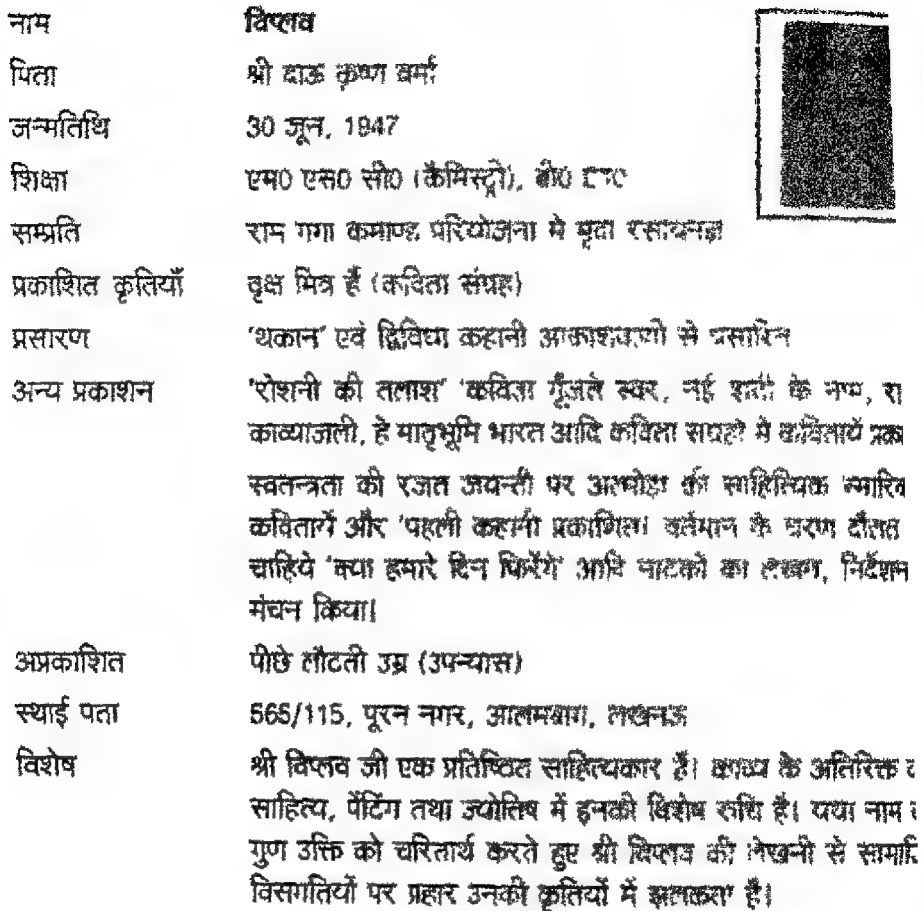 नाम विप्लव
पिता श्री दाऊ कृष्ण वर्मा
जन्मतिथि 30 जून, 1947
शिक्षा एम0 एस0 सी0 (कैमिस्ट्री), बी0
सम्प्रति राम गगा कमाण्ड परियोजना मे मृदा रसायनज्ञ
प्रकाशित कृतियाँ वृक्ष मित्र हैं (कविता संग्रह)
प्रसारण 'थकान' एवं द्विविधा कहानी आकाशवाणी से प्रसारित
अन्य प्रकाशन 'रोशनी की तलाश' 'कविता गूँजते स्वर, नई शती के नाम, रा
काव्याजली, हे मातृभूमि भारत आदि कविता सग्रहो मे कवितायें प्रका
स्वतन्त्रता की रजत जयन्ती पर अल्मोड़ा की साहित्यिक स्मारि
कवितायें और 'पहली कहानी प्रकाशित। वर्तमान के चरण दौलत
चाहिये 'क्या हमारे दिन फिरेंगे' आदि नाटकों का लेखन, निर्देशन
मंचन किया।
अप्रकाशित पीछे लौटती उम्र (उपन्यास)
स्थाई पता 565/115, पूरन नगर, आलमबाग, लखनऊ
विशेष श्री विप्लव जी एक प्रतिष्ठित साहित्यकार हैं। काव्य के अतिरिक्त
साहित्य, पेंटिंग तथा ज्योतिष में इनकी विशेष रुचि है। यथा नाम
गुण उक्ति को चरितार्थ करते हुए श्री विप्लव की लेखनी से सामाि
विसगतियों पर प्रहार उनकी कृतियों में झलकता है।